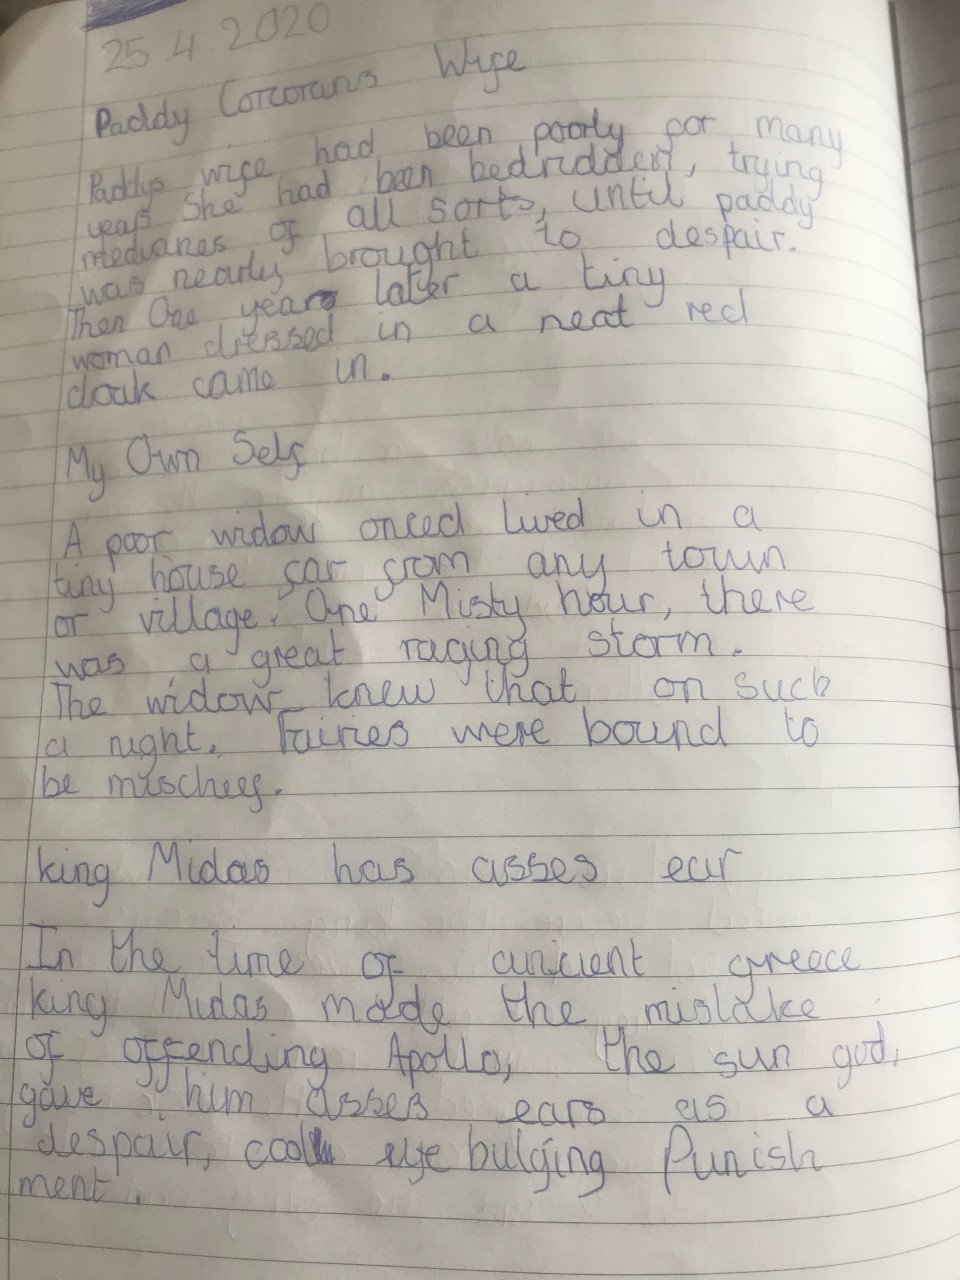 25.4.2020
Paddy Corcorans Wife
Paddys wife had been poorly for many
years She had been bedridden, trying
medicanes of all sorts, until paddy
was nearly brought to despair.
Then One year later a tiny
woman dressed in a neat red
cloak came in.
My Own Self
A poor widow onced lived in a
tiny house far from any town
or village. One Misty hour, there
was a great raging storm.
The widow knew that on such
a night. Fairies were bound to
be mischief.
king Midas has asses ear
In the time of ancient greece
king Midas made the mistake
of offending Apollo, the sun god,
gave him asses ears as a
despair, cool eye bulging Punish
ment.